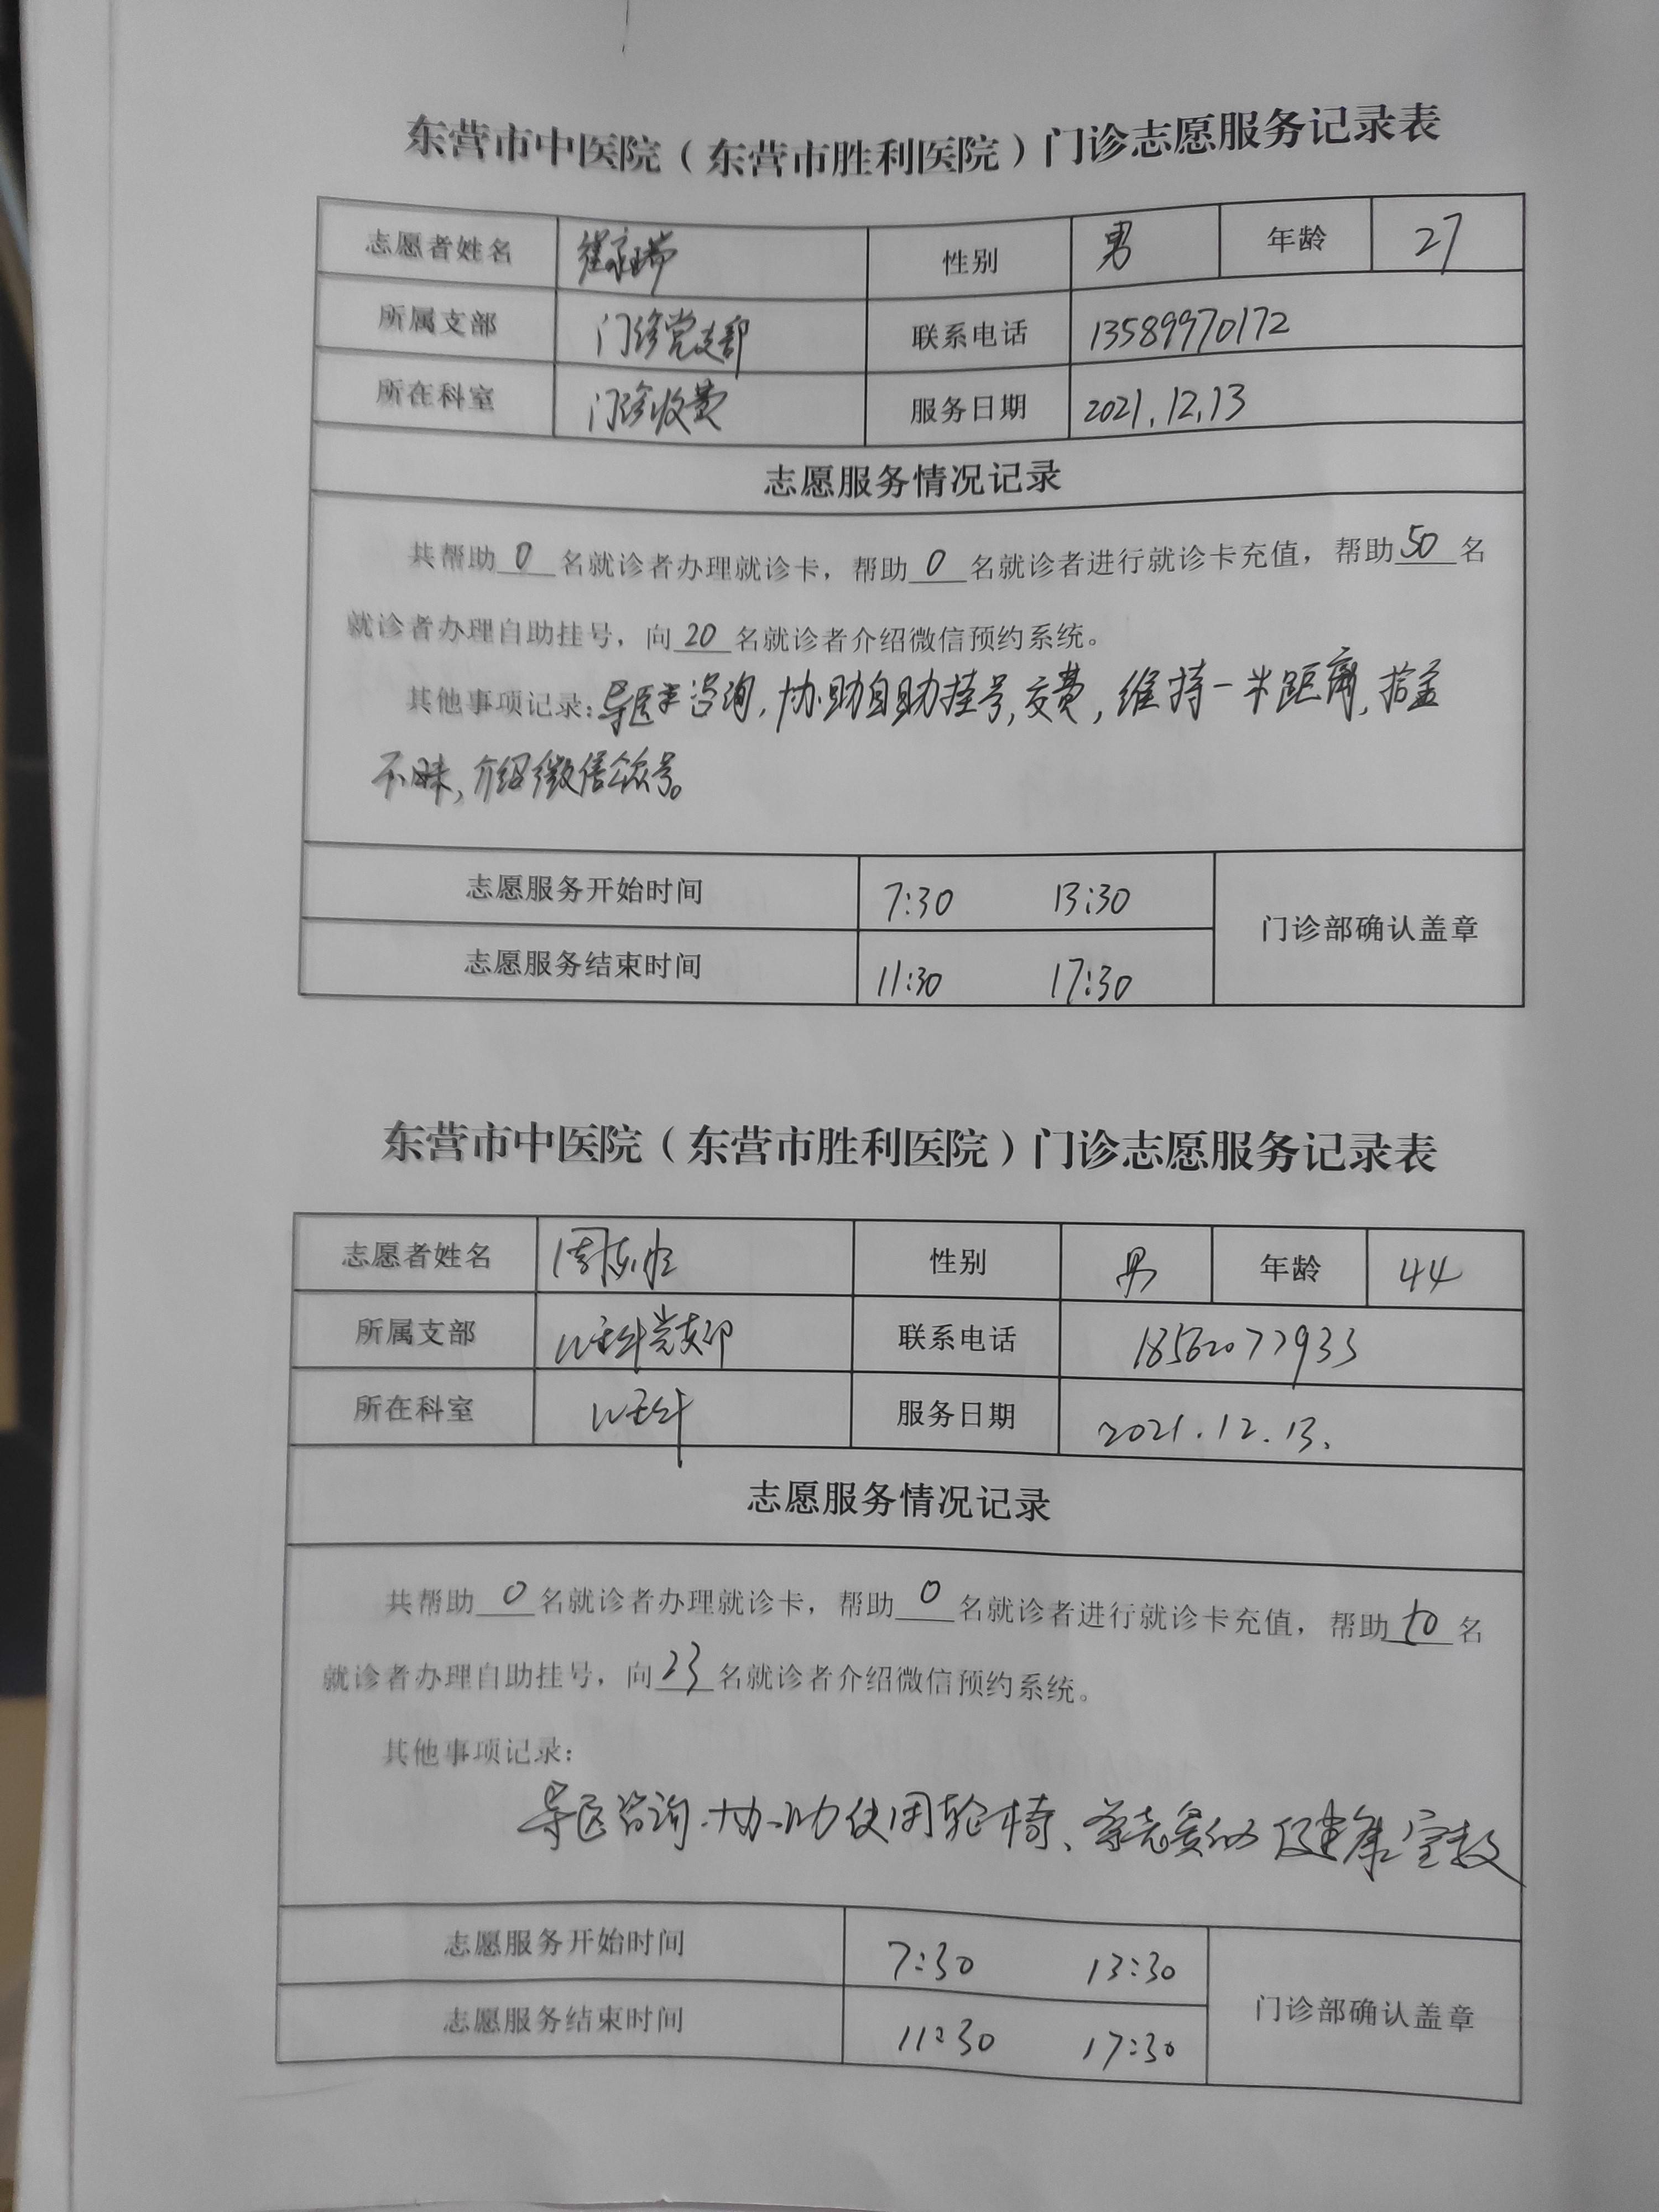 东营市中医院（东营市胜利医院）门诊志愿服务记录表
志愿者姓名 性别 男 年龄 27
所属支部 门诊党支部 联系电话 13589970172
所在科室 门诊收费 服务日期 2021.12.13
志愿服务情况记录
共帮助0名就诊者办理就诊卡，帮助0名就诊者进行就诊卡充值，帮助50名
就诊者办理自助挂号，向20名就诊者介绍微信预约系统。
其他事项记录：导医咨询，协助自助挂号，交费，维持一米距离，拾金
不昧，介绍微信公众号。
志愿服务开始时间 7:30 13:30 门诊部确认盖章
志愿服务结束时间 11:30 17:30
东营市中医院（东营市胜利医院）门诊志愿服务记录表
志愿者姓名 性别 男 年龄 44
所属支部 党支部 联系电话 18562077933
所在科室 服务日期 2021.12.13.
志愿服务情况记录
共帮助0名就诊者办理就诊卡，帮助0名就诊者进行就诊卡充值，帮助名
就诊者办理自助挂号，向23名就诊者介绍微信预约系统。
其他事项记录：
导医咨询.协助使用轮椅、健康宣教
志愿服务开始时间 7:30 13:30 门诊部确认盖章
志愿服务结束时间 11:30 17:30